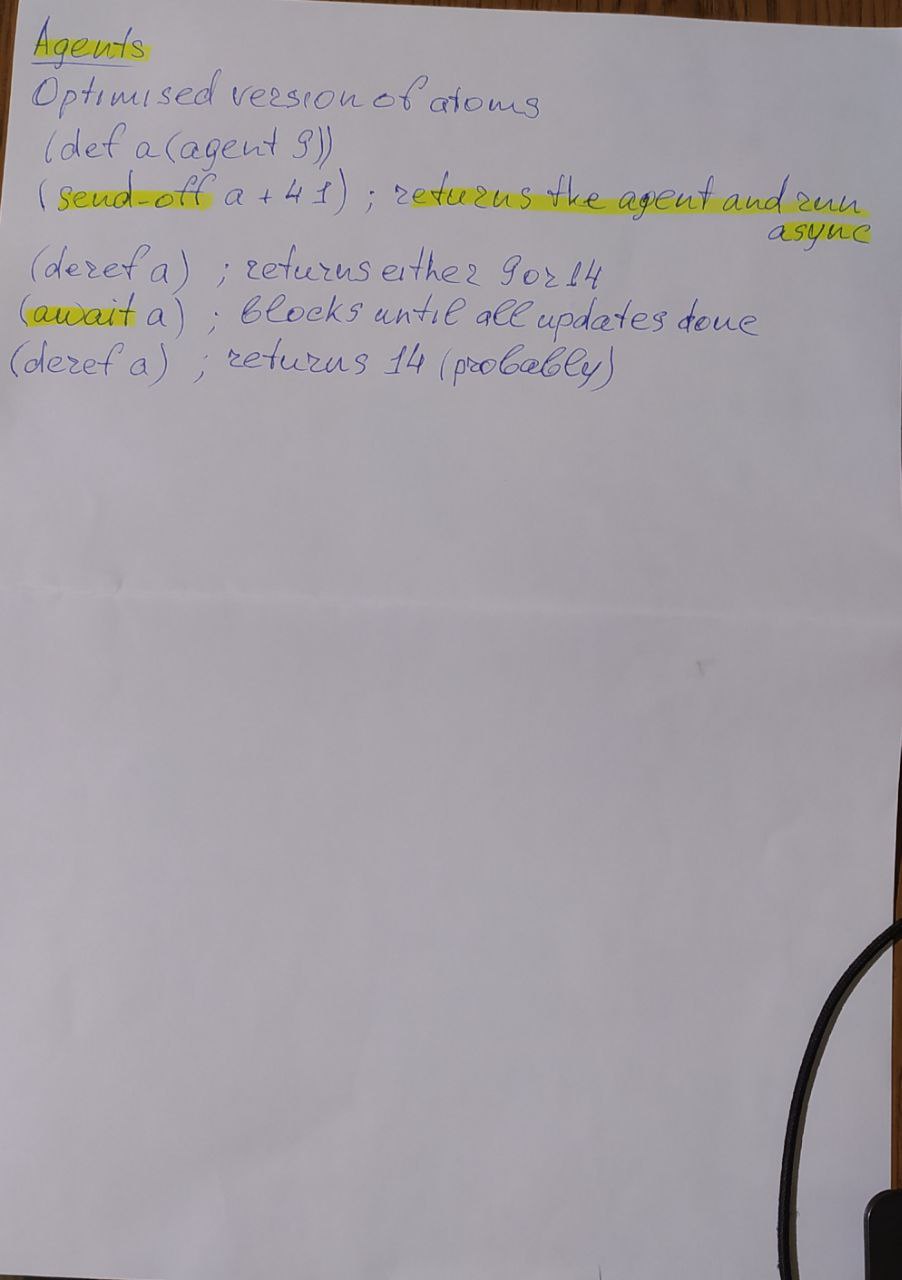 Agents
Optimised version of atoms
(def a (agent 9))
(send-off a + 4 1) ; returns the agent and run
async
(deref a) ; returns either 9 or 14
(await a) ; blocks until all updates done
(deref a) ; returns 14 (probably)